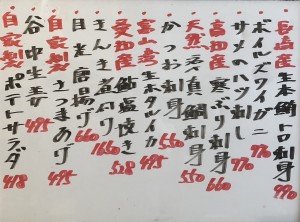 長崎産生本鮪トロ刺身 990
ボイルズワイガニ 990
サメのハツ刺し 770
高知産寒ぶり刺身 660
天然真鯛刺身 550
かつお刺身 550
富山産生本ホタルイカ 495
愛知産鮎塩焼き 528
きんき煮付 1660
目光唐揚げ 660
自家製さつまあげ 495
谷中生姜 495
自家製ポテトサラダ 418